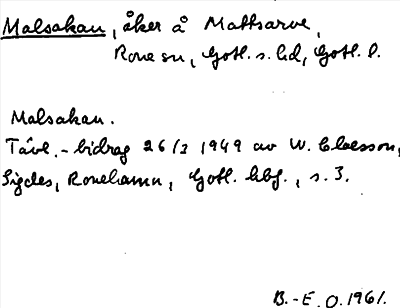 Malsakan, åker å Mattsarve,
Rone sn, Gotl. s. hd, Gotl. l.
Malsakan.
Tävl.-bidrag 26/3 1949 av W. Claesson,
Sigdes, Ronehamn, Gotl. hbg., s. 3.
B.-E. O. 1961.